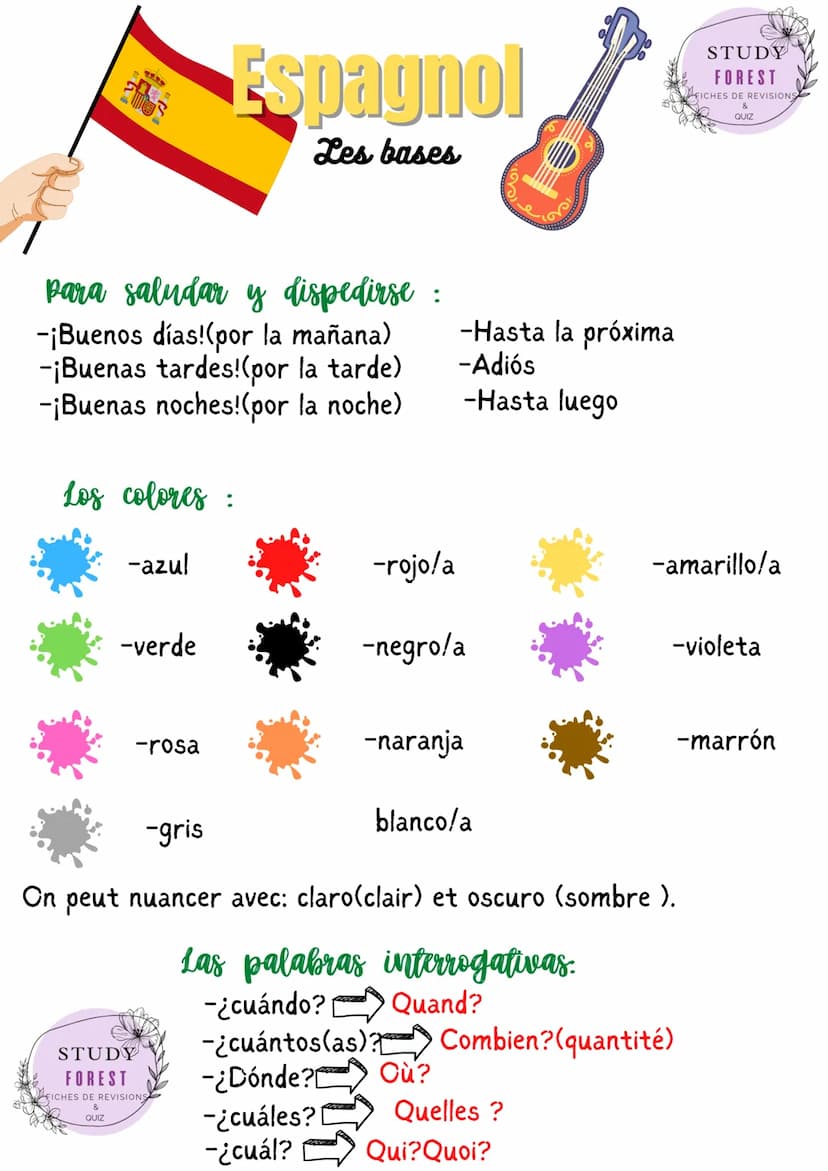 Espagnol
Les bases
STUDY
FOREST
FICHES DE REVISIONS
&
QUIZ
Para saludar y dispedirse :
-¡Buenos días!(por la mañana)
-¡Buenas tardes!(por la tarde)
-¡Buenas noches!(por la noche)
-Hasta la próxima
-Adiós
-Hasta luego
Los colores :
-azul -rojo/a -amarillo/a
-verde -negro/a -violeta
-rosa -naranja -marrón
-gris blanco/a
On peut nuancer avec: claro(clair) et oscuro (sombre ).
Las palabras interrogativas:
-¿cuándo? Quand?
-¿cuántos(as)? Combien?(quantité)
-¿Dónde? Où?
-¿cuáles? Quelles ?
-¿cuál? Qui?Quoi?
STUDY
FOREST
FICHES DE REVISIONS
&
QUIZ